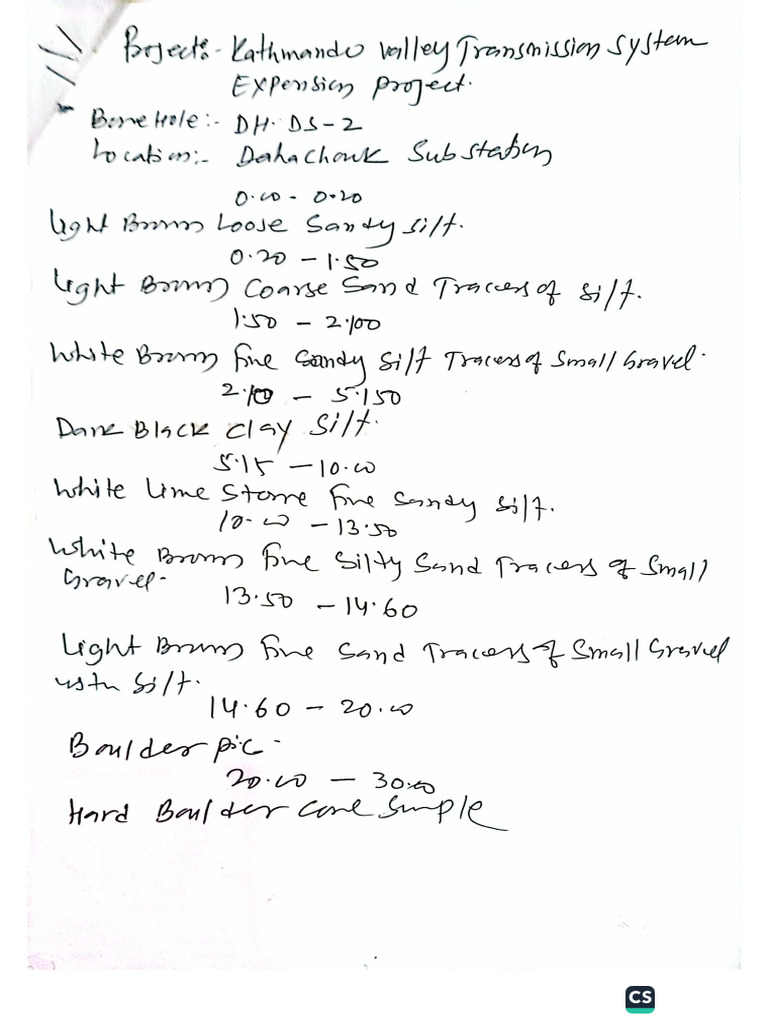 Project:- Kathmandu Valley Transmission System
Expension project.
Bore Hole:- DH. DS-2
Location:- Dahachouk Substation
0.00 - 0.20
Light Brown Loose Sandy silt.
0.20 - 1.50
Light Brown Coarse Sand Tracers of silt.
1.50 - 2.100
White Brown fine Sandy Silt Tracers of Small Gravel.
2.10 - 5.150
Dark Black clay silt.
5.15 - 10.00
White Lime Stone fine Sandy silt.
10.00 - 13.50
White Brown fine Silty Sand Tracers of Small
Gravel.
13.50 - 14.60
Light Brown fine Sand Tracers of Small Gravel
with Silt.
14.60 - 20.00
Boulder pic.
20.00 - 30.00
Hard Boulder Core Sample
CS